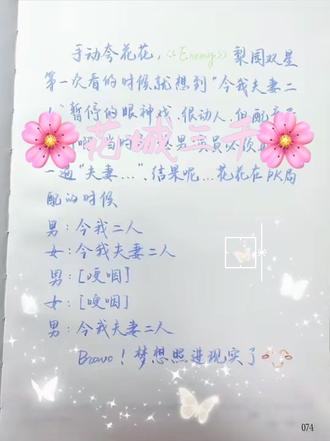 手动夸花花,《Enemy》梨园双星
第一次看的时候就想到“今我夫妻二
暂停的眼神戏,很动人,但配音
花城三千
当时
一遍“夫妻…”,结果呢…花花在PK局
配的时候
男:今我二人
女:今我夫妻二人
男:[哽咽]
女:[哽咽]
男:今我夫妻二人
Bravo!梦想照进现实了
074